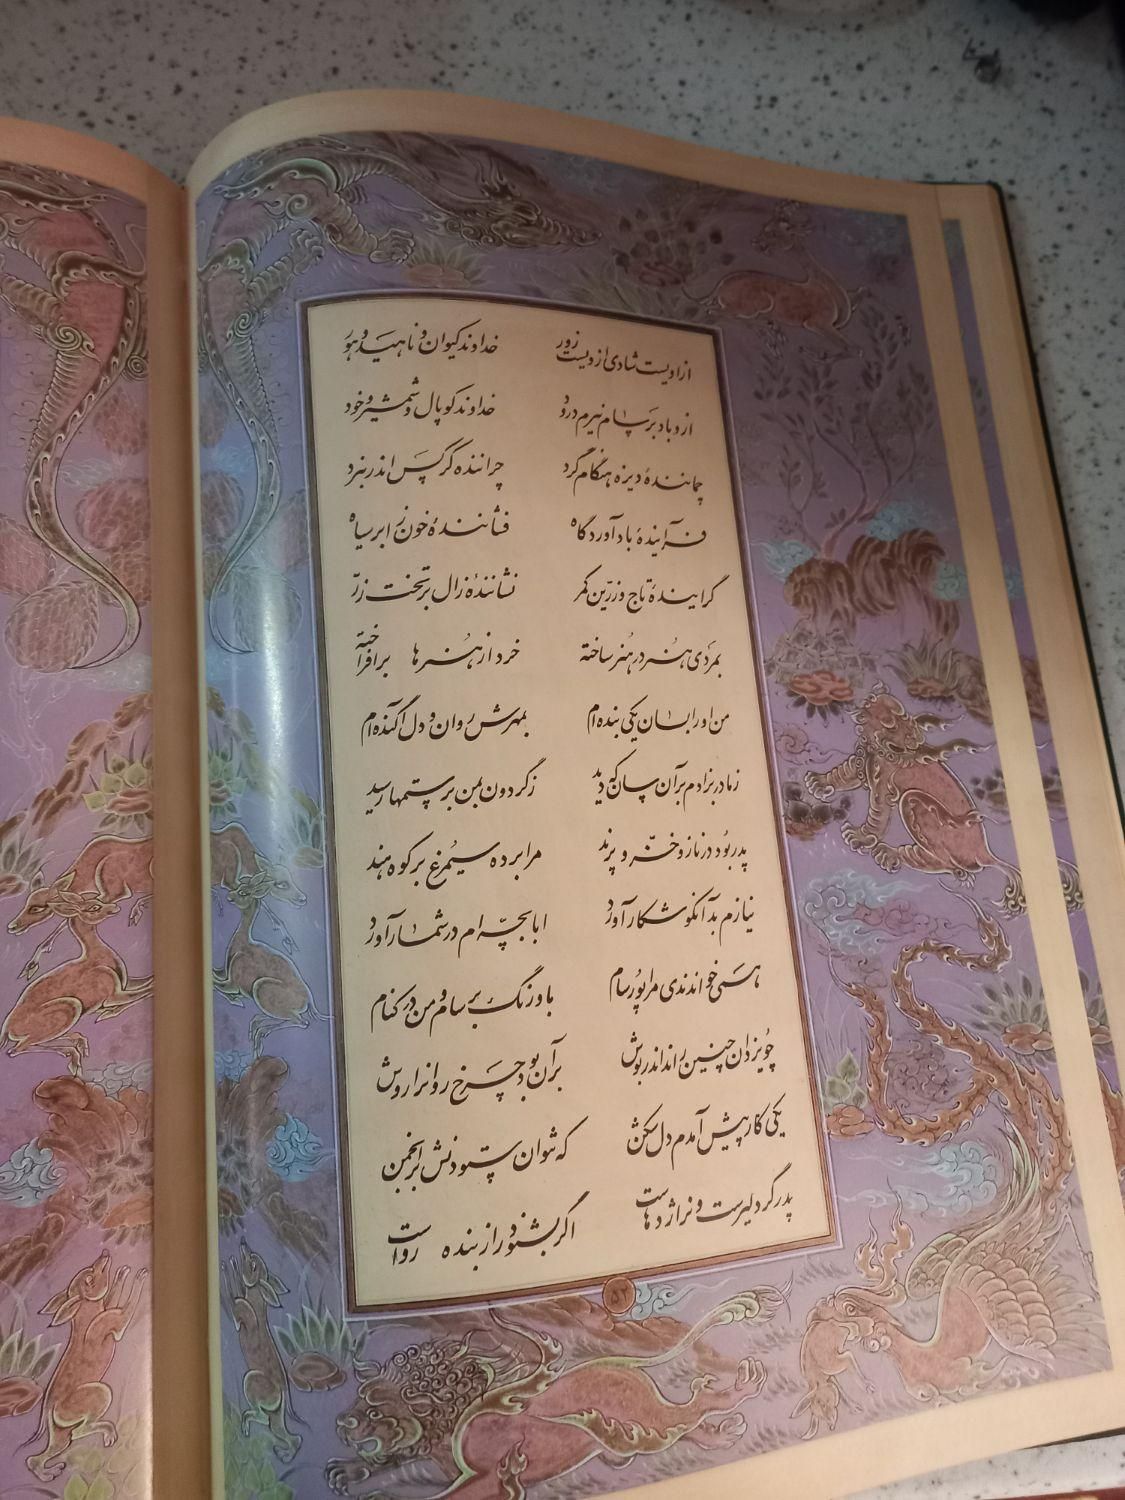 ازاویست شادی ازویست زور خداوند کیوان و ناهید و هور
ازو باد بر سام نیرم درود خداوند کوپال و شمشیر و خود
چمانندهٔ دیزه هنگام گرد چراننده کرگس اندر نبرد
فزایندهٔ باد آوردگاه فشانندهٔ خون ز ابر سیاه
گرایندهٔ تاج و زرین کمر نشانندهٔ زال بر تخت زر
بمردی هنر در هنر ساخته خرد از هنرها برافراخته
من او را بسان یکی بنده‌ام بمهرش روان و دل آگنده‌ام
ز مادر بزادم بر آن سان که دید ز گردون بمن بر ستمها رسید
پدر بود در ناز و خز و پرند مرا برده سیمرغ بر کوه هند
نیازم بد آنکو شکار آورد ابا بچه‌ام در شمار آورد
همی خواندندی مرا پور سام باورنگ بر سام و من در کنام
چو یزدان چنین راند اندر بوش بر آن بود چرخ روان را روش
یکی کار پیش آمدم دل شکن که نتوان ستودنش بر انجمن
پدر گر دلیرست و نر اژدهاست اگر بشنود راز بنده رواست
۵۲